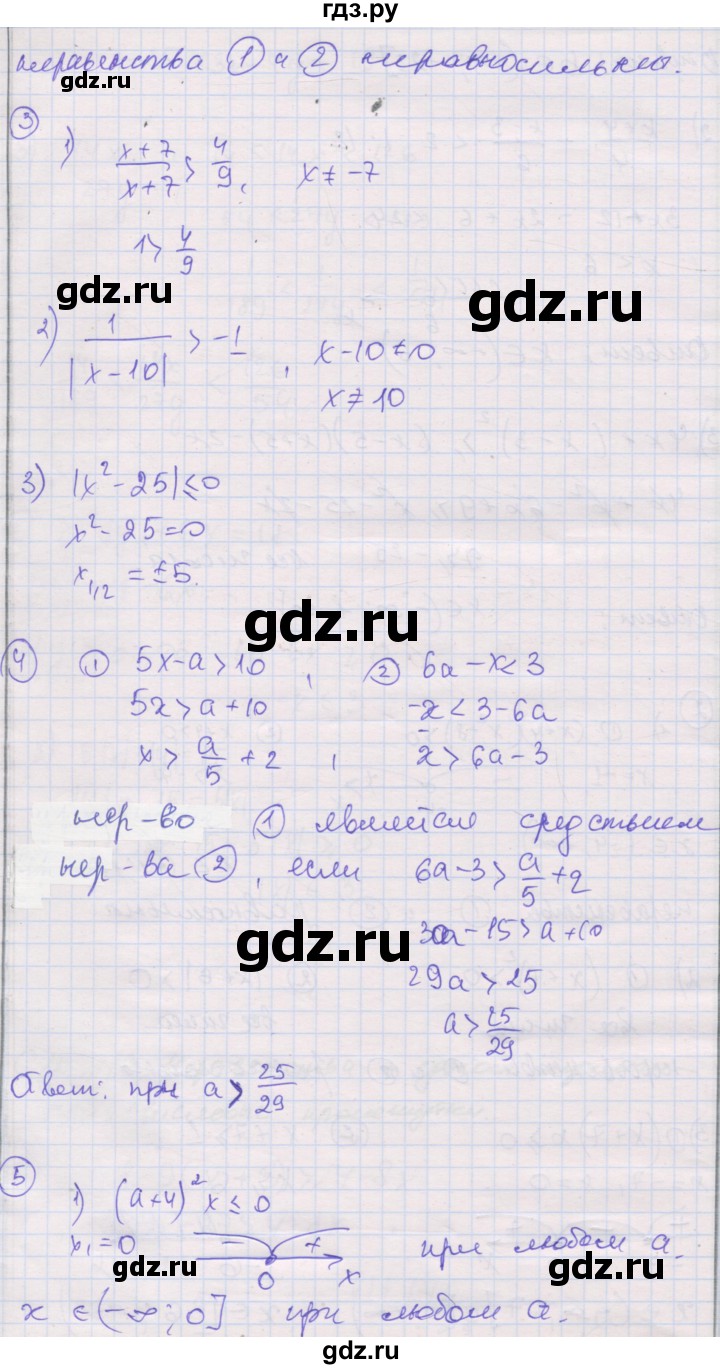 гдз.ру
неравенства ① и ② неравносильны.
③
1) (x+7)/(x+7) > 4/9, x ≠ -7
1 > 4/9
gdz.ru gdz.ru
2) 1/|x-10| > -1, x-10≠0
x ≠ 10
3) |x²-25| ≤ 0
x²-25=0
x₁,₂ = ±5.
gdz.ru
④ ① 5x-a>10, ② 6a-x<3
5x>a+10 -x<3-6a
x > a/5 + 2, x > 6a-3
нер-во ① является средствием
нер-ва ②, если 6a-3 > a/5 + 2
gdz.ru
30a-15>a+10
29a > 25
a > 25/29
Ответ: при a > 25/29
⑤
1) (a+4)²x ≤ 0
x₁=0 - + при любом a.
0 x
gdz.ru gdz.ru
x ∈ (-∞; 0] при любом a.